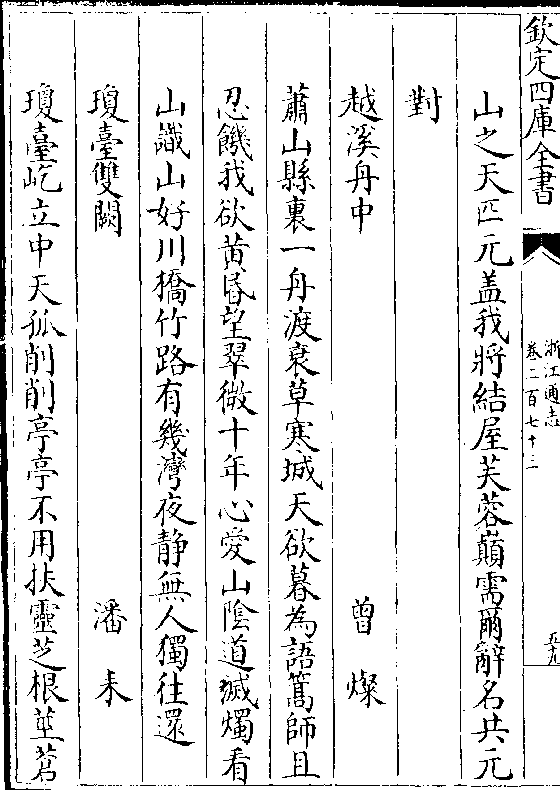 欽定四庫全書
浙江通志
卷二百七十三
五十九
山之天匹元盖我將結屋芙蓉巔需爾辭名共元
對
越溪舟中
曾燦
蕭山縣裏一舟渡衰草寒城天欲暮為語篙師且
忍饑我欲黄昏望翠微十年心愛山陰道滅燭看
山議山好川橋竹路有幾灣夜静無人獨往還
瓊臺雙闕
潘耒
瓊臺屹立中天孤削削亭亭不用扶靈芝根莖苕